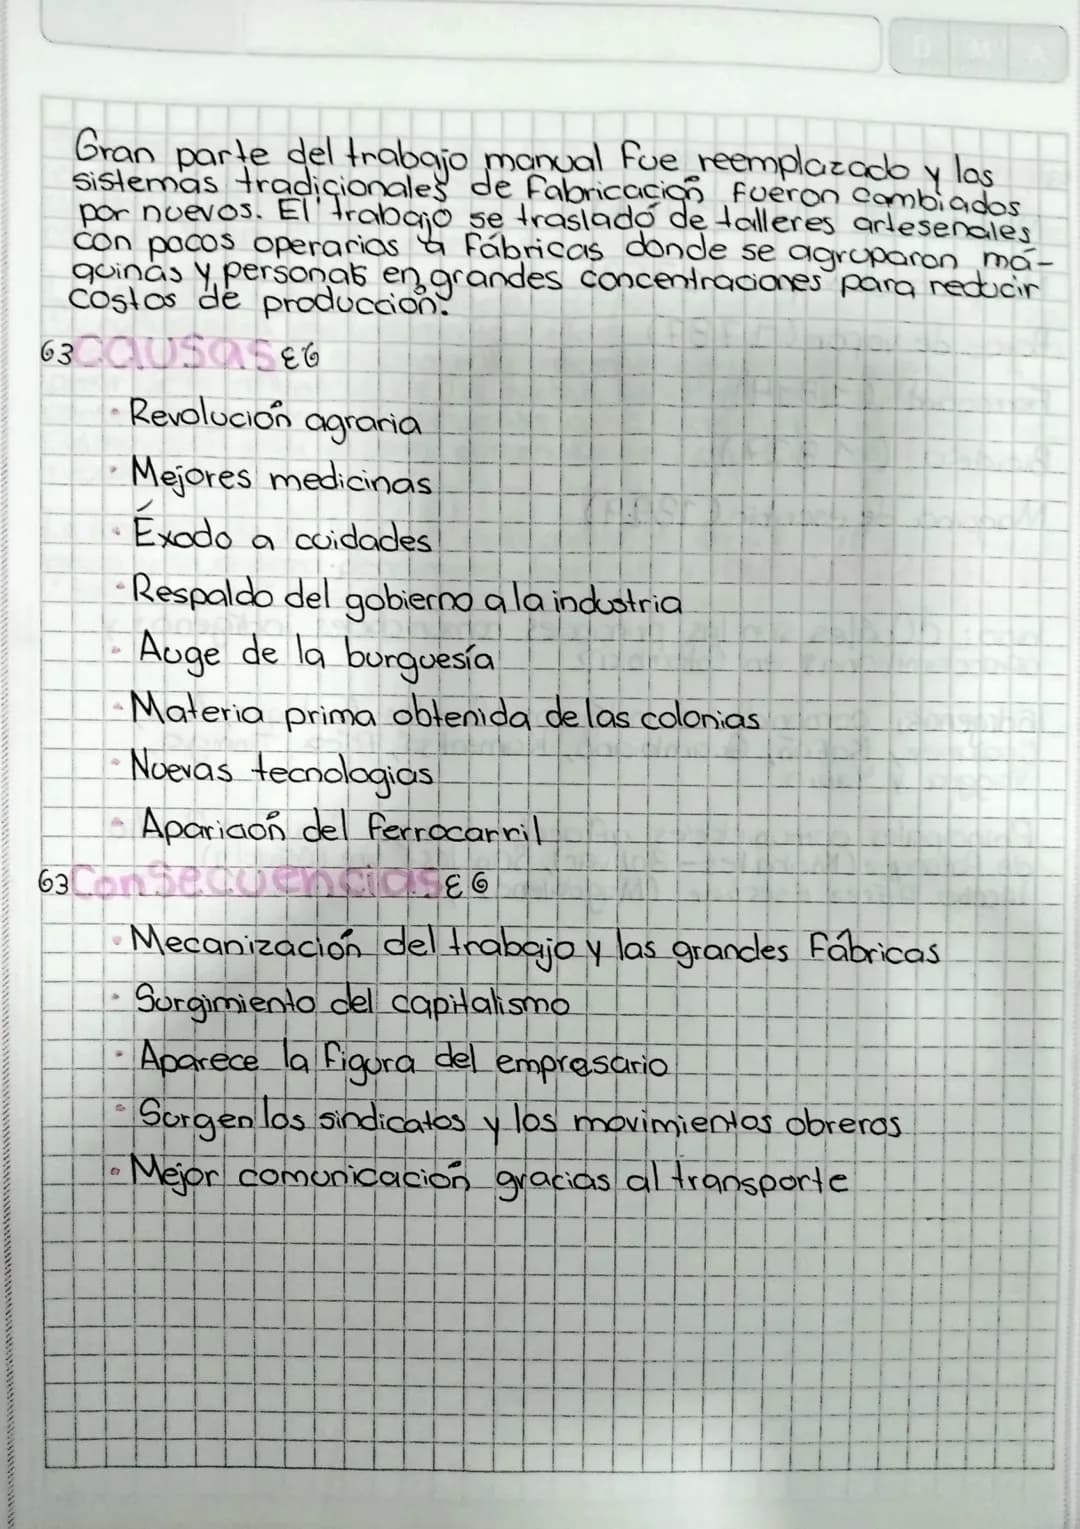 D M A
Gran parte del trabajo manual fue reemplazado y los
sistemas tradicionales de fabricación fueron cambiados
por nuevos. El trabajo se trasladó de talleres artesenales
con pocos operarios a fábricas donde se agruparon má-
quinas y personas en grandes concentraciones para reducir
costos de producción.
causas
• Revolución agraria
• Mejores medicinas
• Éxodo a cuidades
• Respaldo del gobierno a la industria
• Auge de la burguesía
• Materia prima obtenida de las colonias
• Nuevas tecnologias
• Aparición del ferrocarril
Consecuencias
• Mecanización del trabajo y las grandes fábricas
• Surgimiento del capitalismo
• Aparece la figura del empresario
• Surgen los sindicatos y los movimientos obreros
• Mejor comunicación gracias al transporte